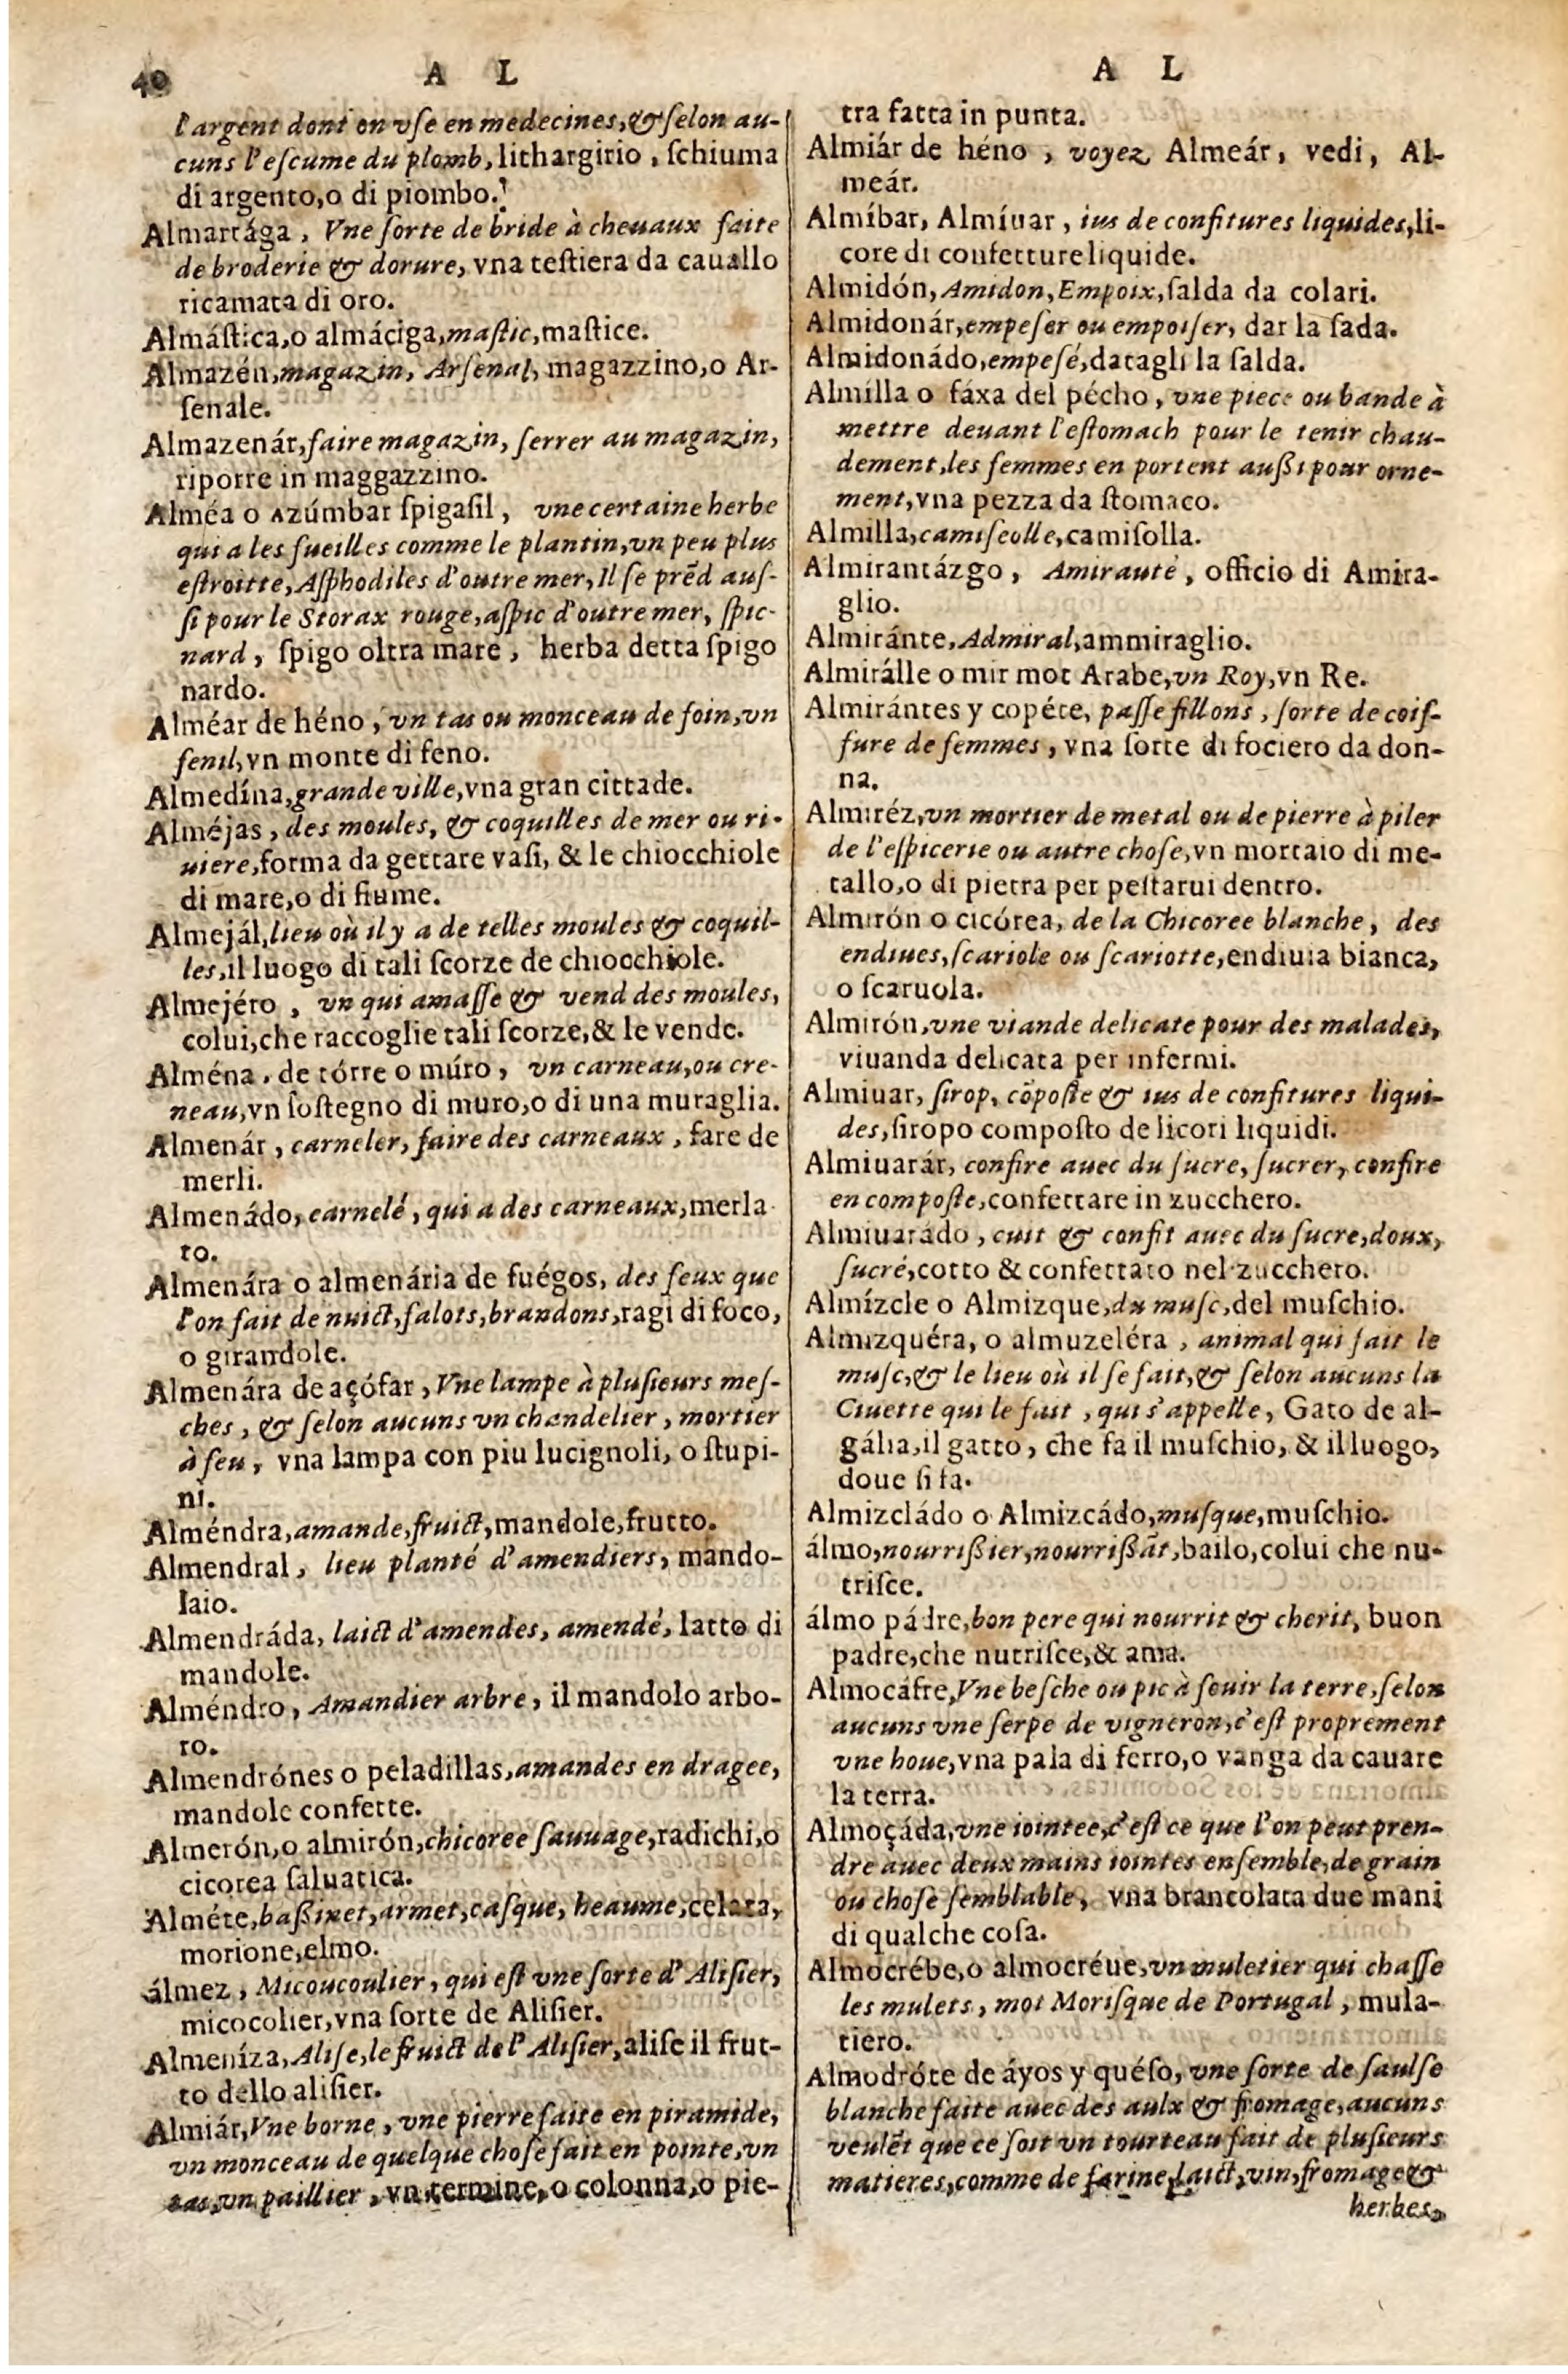 40
A L
l'argent dont on vſe en medecines, & ſelon au-
cuns l'eſcume du plomb, lithargirio, ſchiuma
di argento, o di piombo.
Almartága, Vne ſorte de bride à cheuaux faite
de broderie & dorure, vna teſtiera da cauallo
ricamata di oro.
Almáſtica, o almáciga, maſtic, maſtice.
Almazén, magazin, Arſenal, magazzino, o Ar-
ſenale.
Almazenár, faire magazin, ſerrer au magazin,
riporre in maggazzino.
Alméa o Azúmbar ſpigaſil, vne certaine herbe
qui a les fueilles comme le plantin, vn peu plus
eſtroitte, Aſphodiles d'outre mer, Il ſe prẽd auſ-
ſi pour le Storax rouge, aſpic d'outre mer, ſpic-
nard, ſpigo oltra mare, herba detta ſpigo
nardo.
Alméar de héno, vn tas ou monceau de foin, vn
fenil, vn monte di feno.
Almedína, grande ville, vna gran cittade.
Alméjas, des moules, & coquilles de mer ou ri-
uiere, forma da gettare vaſi, & le chiocchiole
di mare, o di fiume.
Almejál, lieu où il y a de telles moules & coquil-
les, il luogo di tali ſcorze de chiocchiole.
Almejéro, vn qui amaſſe & vend des moules,
colui, che raccoglie tali ſcorze, & le vende.
Alména, de tórre o múro, vn carneau, ou cre-
neau, vn ſoſtegno di muro, o di una muraglia.
Almenár, carneler, faire des carneaux, fare de
merli.
Almenádo, carnelé, qui a des carneaux, merla
to.
Almenára o almenária de fuégos, des feux que
l'on fait de nuict, falots, brandons, ragi di foco,
o girandole.
Almenára de açófar, Vne lampe à pluſieurs meſ-
ches, & ſelon aucuns vn chandelier, mortier
à feu, vna lampa con piu lucignoli, o ſtupi-
ni.
Alméndra, amande, fruict, mandole, frutto.
Almendral, lieu planté d'amendiers, mando-
laio.
Almendráda, laict d'amendes, amendé, latto di
mandole.
Alméndro, Amandier arbre, il mandolo arbo-
ro.
Almendrónes o peladillas, amandes en dragee,
mandole confette.
Almerón, o almirón, chicoree ſauuage, radichi, o
cicorea ſaluatica.
Alméte, baßinet, armet, caſque, heaume, celata,
morione, elmo.
álmez, Micoucoulier, qui eſt vne ſorte d'Aliſier,
micocolier, vna ſorte de Aliſier.
Almeníza, Aliſe, le fruict de l'Aliſier, aliſe il frut-
to dello aliſier.
Almiár, Vne borne, vne pierre faite en piramide,
vn monceau de quelque choſe fait en pointe, vn
tas, vn paillier, vn termine, o colonna, o pie-
A L
tra fatta in punta.
Almiár de héno, voyez Almeár, vedi, Al-
meár.
Almíbar, Almíuar, ius de confitures liquides, li-
core di confetture liquide.
Almidón, Amidon, Empoix, ſalda da colari.
Almidonár, empeſer ou empoiſer, dar la ſada.
Almidonádo, empeſé, datagli la ſalda.
Almilla o fáxa del pécho, vne piece ou bande à
mettre deuant l'eſtomach pour le tenir chau-
dement, les femmes en portent außi pour orne-
ment, vna pezza da ſtomaco.
Almilla, camiſeolle, camiſolla.
Almirantázgo, Amirauté, officio di Amira-
glio.
Almiránte, Admiral, ammiraglio.
Almirálle o mir mot Arabe, vn Roy, vn Re.
Almirántes y copéte, paſſefillons, ſorte de coif-
fure de femmes, vna ſorte di fociero da don-
na.
Almiréz, vn mortier de metal ou de pierre à piler
de l'eſpicerie ou autre choſe, vn mortaio di me-
tallo, o di pietra per peſtarui dentro.
Almirón o cicórea, de la Chicoree blanche, des
endiues, ſcariole ou ſcariotte, endiuia bianca,
o ſcaruola.
Almirón, vne viande delicate pour des malades,
viuanda delicata per infermi.
Almiuar, ſirop, cõpoſte & ius de confitures liqui-
des, ſiropo compoſto de licori liquidi.
Almiuarár, confire auec du ſucre, ſucrer, confire
en compoſte, confettare in zucchero.
Almiuarádo, cuit & confit auec du ſucre, doux,
ſucré, cotto & confettato nel zucchero.
Almízcle o Almizque, du muſc, del muſchio.
Almizquéra, o almuzeléra, animal qui fait le
muſc, & le lieu où il ſe fait, & ſelon aucuns la
Ciuette qui le fait, qui s'appelle, Gato de al-
gália, il gatto, che fa il muſchio, & il luogo,
doue ſi fa.
Almizcládo o Almizcádo, muſque, muſchio.
álmo, nourrißier, nourrißãt, bailo, colui che nu-
triſce.
álmo pádre, bon pere qui nourrit & cherit, buon
padre, che nutriſce, & ama.
Almocáfre, Vne beſche ou pic à fouir la terre, ſelon
aucuns vne ſerpe de vigneron, c'eſt proprement
vne houe, vna pala di ferro, o vanga da cauare
la terra.
Almoçáda, vne iointee, c'eſt ce que l'on peut pren-
dre auec deux mains iointes enſemble, de grain
ou choſe ſemblable, vna brancolata due mani
di qualche coſa.
Almocrébe, o almocréue, vn muletier qui chaſſe
les mulets, mot Moriſque de Portugal, mula-
tiero.
Almodróte de áyos y quéſo, vne ſorte de ſaulſe
blanche faite auec des aulx & fromage, aucuns
veulẽt que ce ſoit vn tourteau fait de pluſieurs
matieres, comme de farine, laict, vin, fromage &
herbes,